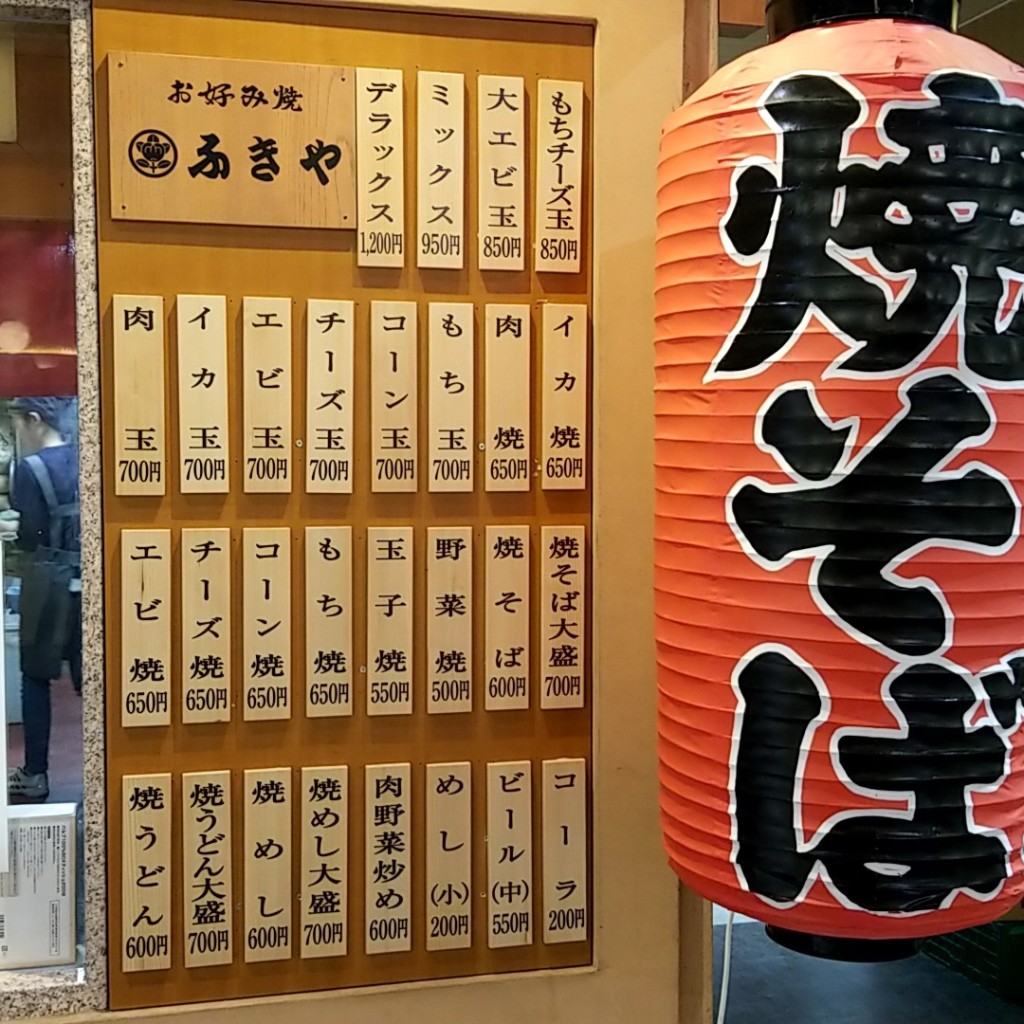 お好み焼
ふきや
デラックス 1,200円
ミックス 950円
大エビ玉 850円
もちチーズ玉 850円
肉玉 700円
イカ玉 700円
エビ玉 700円
チーズ玉 700円
コーン玉 700円
もち玉 700円
肉焼 650円
イカ焼 650円
エビ焼 650円
チーズ焼 650円
コーン焼 650円
もち焼 650円
玉子焼 550円
野菜焼 500円
焼そば 600円
焼そば大盛 700円
焼うどん 600円
焼うどん大盛 700円
焼めし 600円
焼めし大盛 700円
肉野菜炒め 600円
めし(小) 200円
ビール(中) 550円
コーラ 200円
焼そば